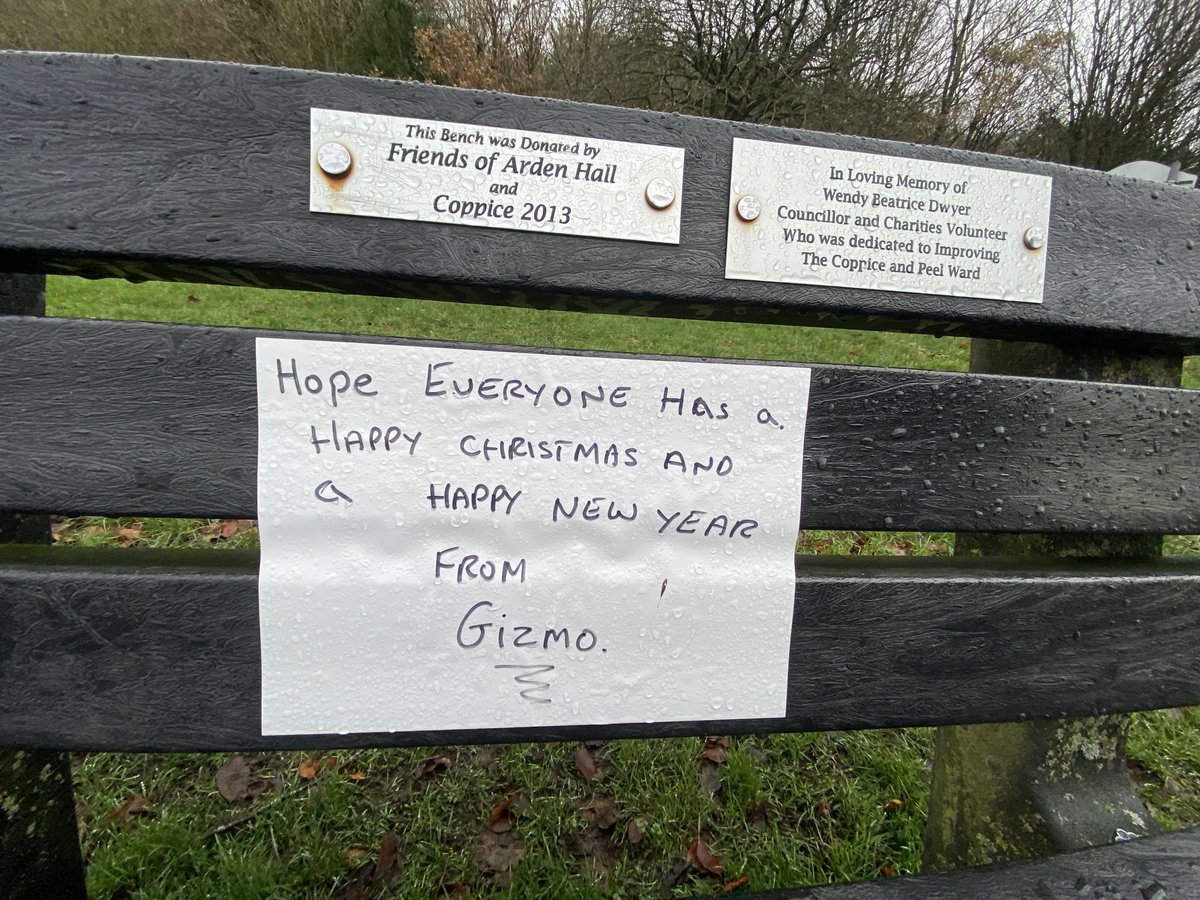 This Bench was Donated by
Friends of Arden Hall
and
Coppice 2013
In Loving Memory of
Wendy Beatrice Dwyer
Councillor and Charities Volunteer
Who was dedicated to Improving
The Coppice and Peel Ward
Hope EVERYONE Has a.
HAPPY CHRISTMAS AND
a HAPPY NEW YEAR
FROM
GIZMO.